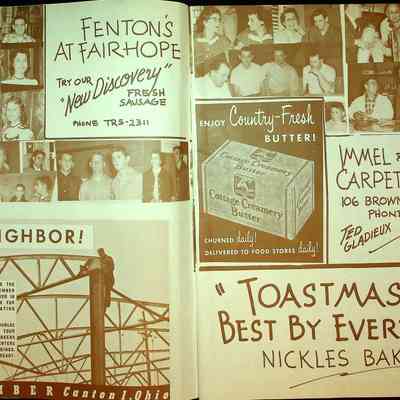 FENTON'S
AT FAIRHOPE
TRY OUR
"New Discovery"
FRESH
SAUSAGE
PHONE TR5-2311
IGHBOR!
THE
IN
FOR
YOUR
BER Canton 1, Ohio
ENJOY Country-Fresh
BUTTER!
Cottage Creamery
Butter
Cottage Creamery
Butter
CHURNED daily!
DELIVERED TO FOOD STORES daily!
IMMEL &
CARPET
106 BROWN
PHON
TED
GLADIEUX
"TOASTMAS
BEST BY EVER
NICKLES BAK